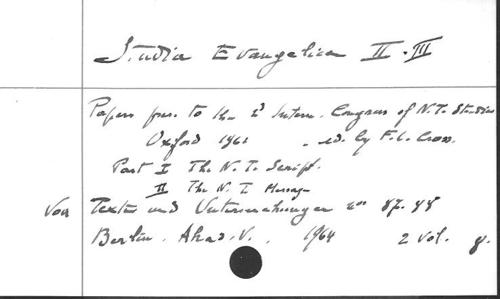 Studia Evangelica II-III
Papers pres. to the 2d Intern. Congress of N.T. Studies
Oxford 1961. ed. by F.L. Cross.
Part I The N.T. Script.
II The N.T. Message
Texte und Untersuchungen 87. 88
Berlin. Akad. V. 1964 2 vol. 8.